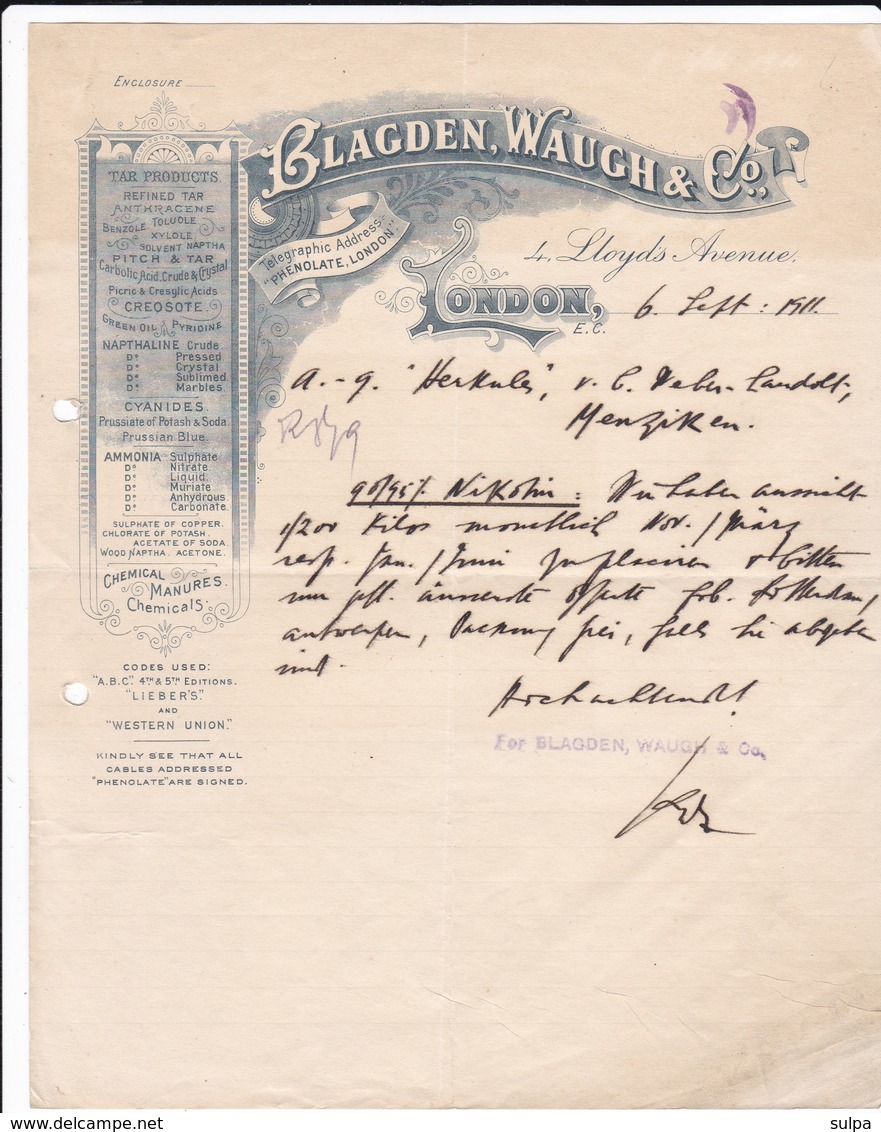 ENCLOSURE
BLAGDEN, WAUGH & Co.,
Telegraphic Address:
"PHENOLATE, LONDON".
4, Lloyd's Avenue,
LONDON,
E.C.
6 Sept : 1911.
TAR PRODUCTS.
REFINED TAR
ANTHRACENE
BENZOLE TOLUOLE
XYLOLE
SOLVENT NAPTHA
PITCH & TAR
Carbolic Acid, Crude & Crystal
Picric & Cresylic Acids
CREOSOTE.
GREEN OIL & PYRIDINE
NAPTHALINE Crude.
Do Pressed
Do Crystal
Do Sublimed
Do Marbles.
CYANIDES.
Prussiate of Potash & Soda
Prussian Blue.
AMMONIA Sulphate
Do Nitrate
Do Liquid.
Do Muriate
Do Anhydrous
Do Carbonate.
SULPHATE OF COPPER.
CHLORATE OF POTASH.
ACETATE OF SODA.
WOOD NAPTHA. ACETONE.
CHEMICAL
MANURES.
Chemicals.
CODES USED:
"A.B.C." 4TH & 5TH EDITIONS.
"LIEBER'S."
AND
"WESTERN UNION."
KINDLY SEE THAT ALL
CABLES ADDRESSED
"PHENOLATE" ARE SIGNED.
A.-G. "Herkules", v. C. Weber-Landolt,
Menziken.
90/95% Nikotin : Wir haben Aussicht
1/200 Kilos monatlich Nov./März
resp. Jan./Juni zu placiren & bitten
um gfl. äusserste Offerte fob. Rotterdam,
Antwerpen, Packung frei, falls Sie Abgeber
sind.
Hochachtend!
For BLAGDEN, WAUGH & Co.